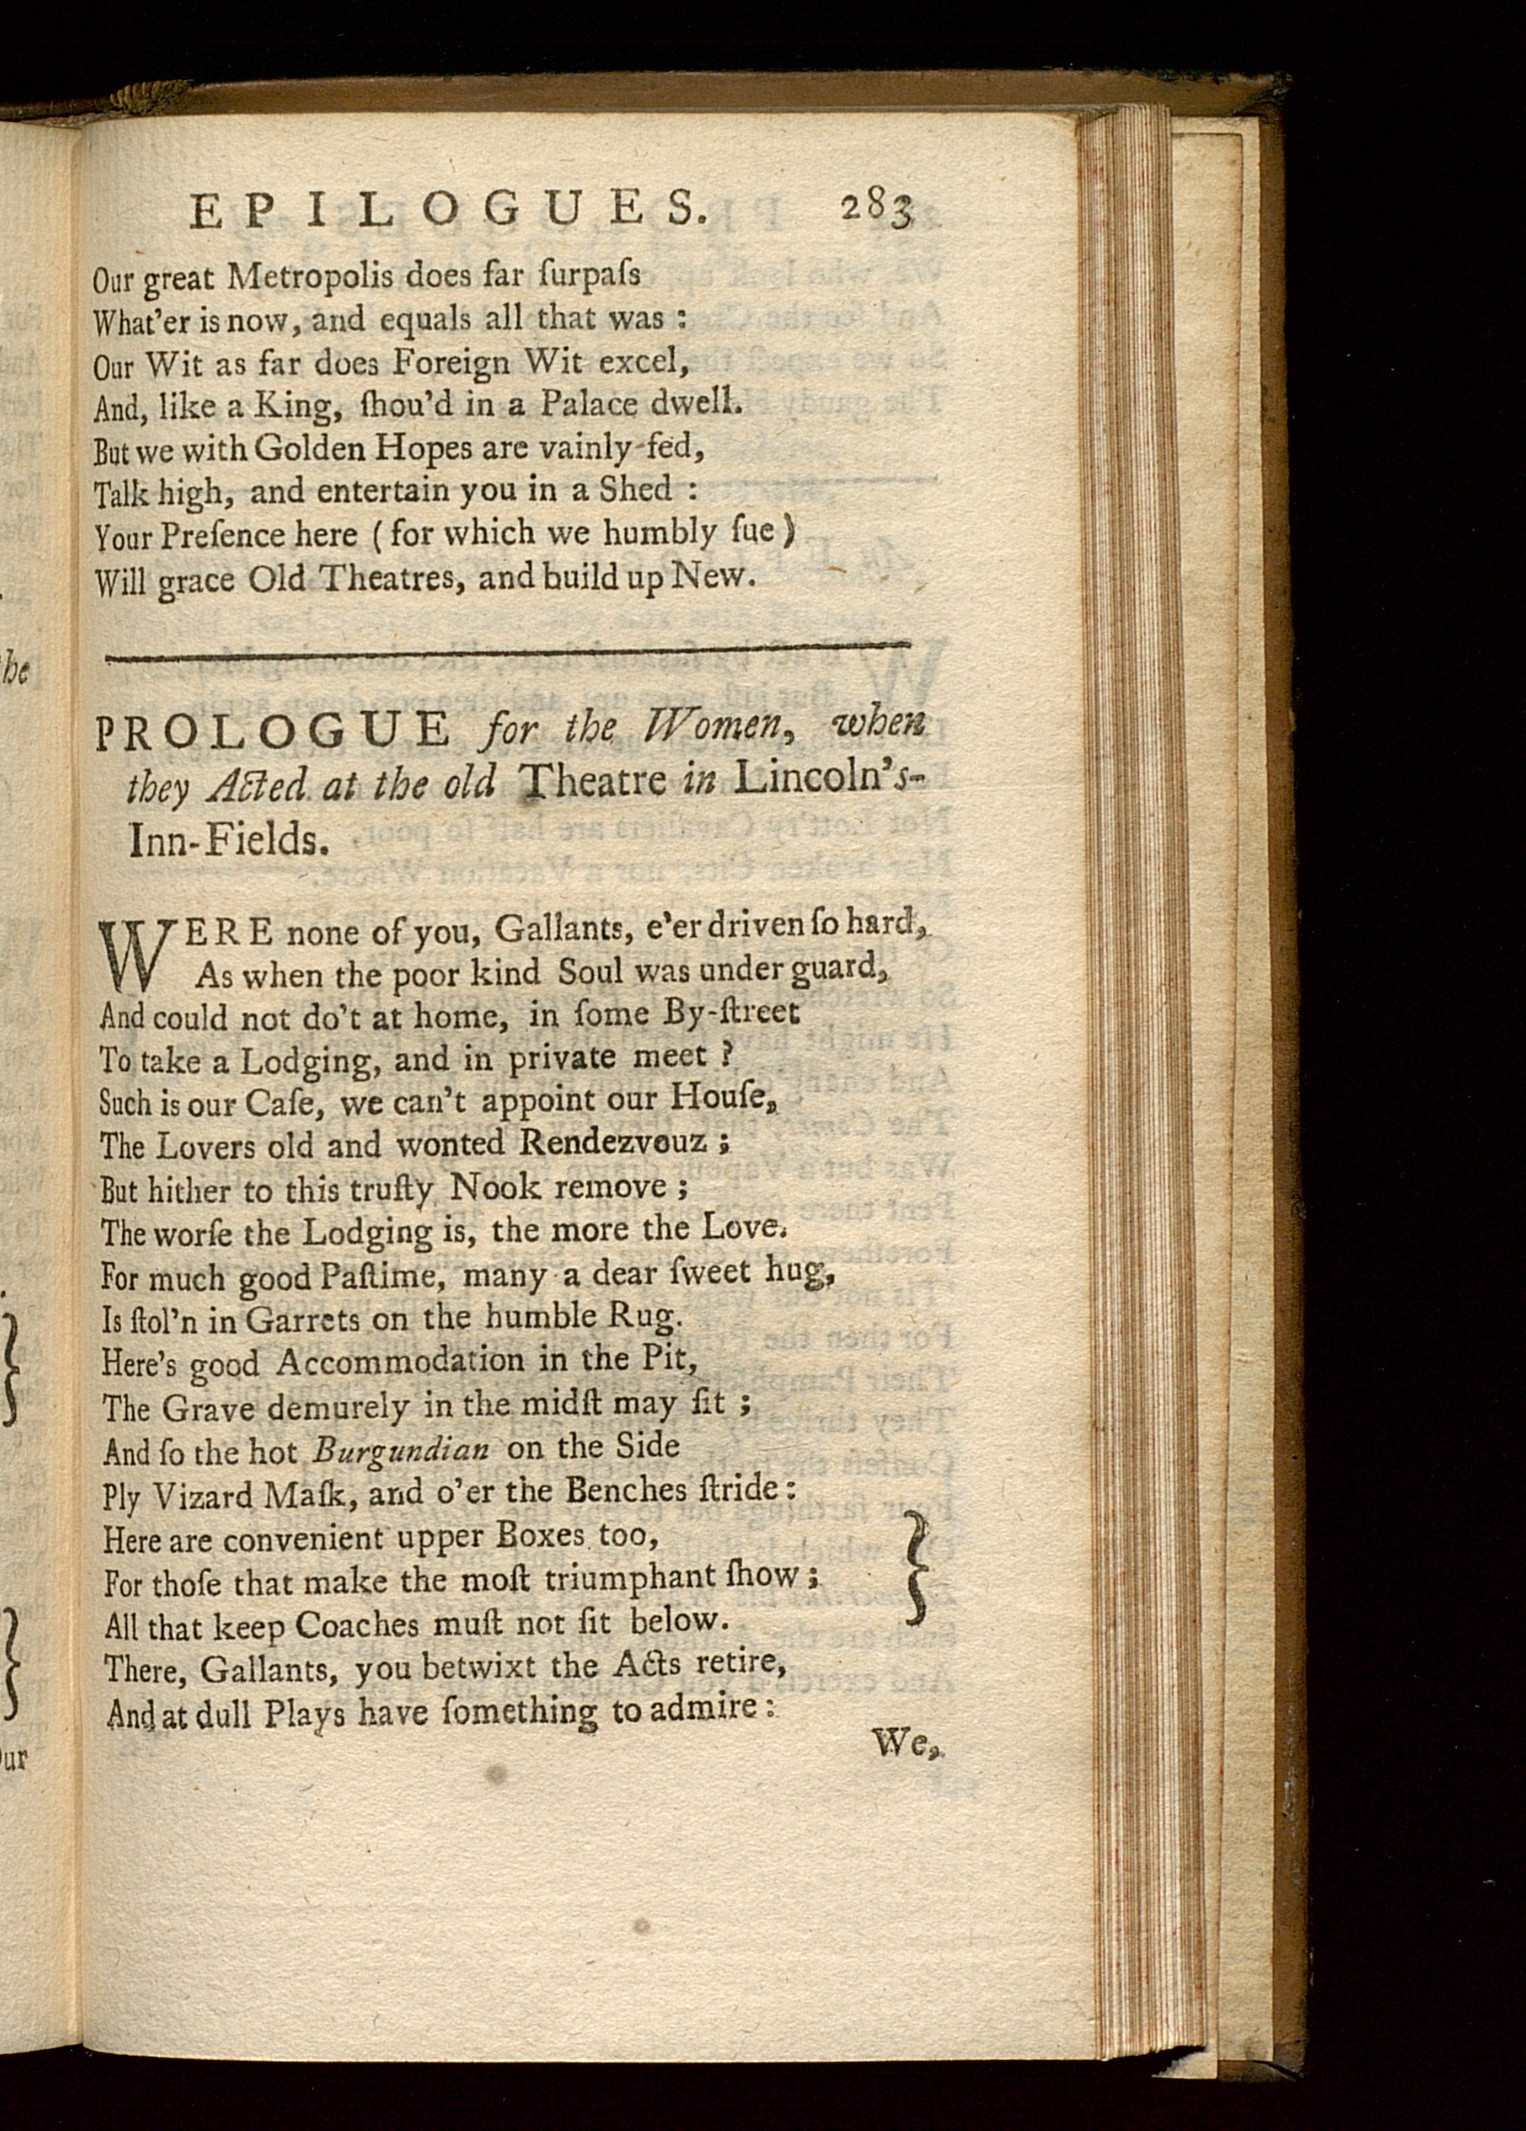 EPILOGUES. 283
Our great Metropolis does far ſurpaſs
What'er is now, and equals all that was :
Our Wit as far does Foreign Wit excel,
And, like a King, ſhou'd in a Palace dwell.
But we with Golden Hopes are vainly fed,
Talk high, and entertain you in a Shed :
Your Preſence here ( for which we humbly ſue )
Will grace Old Theatres, and build up New.
PROLOGUE for the Women, when
they Acted at the old Theatre in Lincoln's-
Inn-Fields.
WERE none of you, Gallants, e'er driven ſo hard,
As when the poor kind Soul was under guard,
And could not do't at home, in ſome By-ſtreet
To take a Lodging, and in private meet ?
Such is our Caſe, we can't appoint our Houſe,
The Lovers old and wonted Rendezvouz ;
But hither to this truſty Nook remove ;
The worſe the Lodging is, the more the Love.
For much good Paſtime, many a dear ſweet hug,
Is ſtol'n in Garrets on the humble Rug.
Here's good Accommodation in the Pit,
The Grave demurely in the midſt may ſit ;
And ſo the hot Burgundian on the Side
Ply Vizard Maſk, and o'er the Benches ſtride :
Here are convenient upper Boxes too,
For thoſe that make the moſt triumphant ſhow ;
All that keep Coaches muſt not ſit below.
There, Gallants, you betwixt the Acts retire,
And at dull Plays have ſomething to admire :
We,